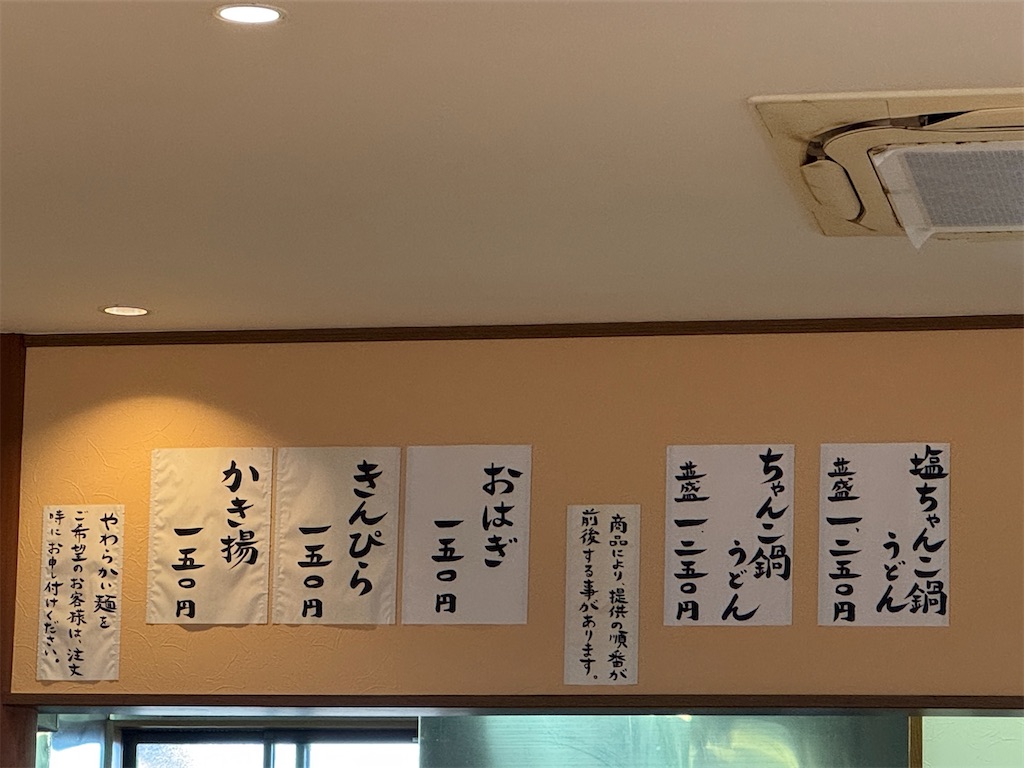 塩ちゃんこ鍋
うどん
並盛 一、二五〇円
ちゃんこ鍋
うどん
並盛 一、二五〇円
商品により、提供の順番が
前後する事があります。
おはぎ
一五〇円
きんぴら
一五〇円
かき揚
一五〇円
やわらかい麺を
ご希望のお客様は、注文
時にお申し付けください。